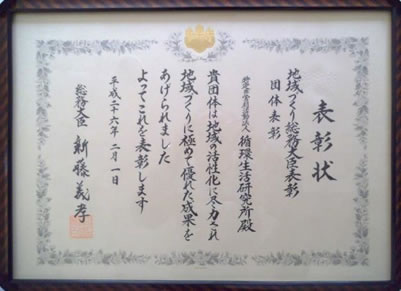 表彰状
地域づくり総務大臣表彰
団体表彰
特定非営利活動法人 循環生活研究所殿
貴団体は地域の活性化に尽力され
地域づくりに極めて優れた成果を
あげられました
よってこれを表彰します
平成二十六年二月一日
総務大臣 新藤義孝